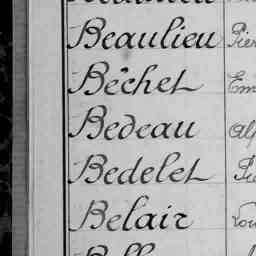 Beaulieu Pier
Béchet Em
Bedeau Alp
Bedelet
Belair Lou